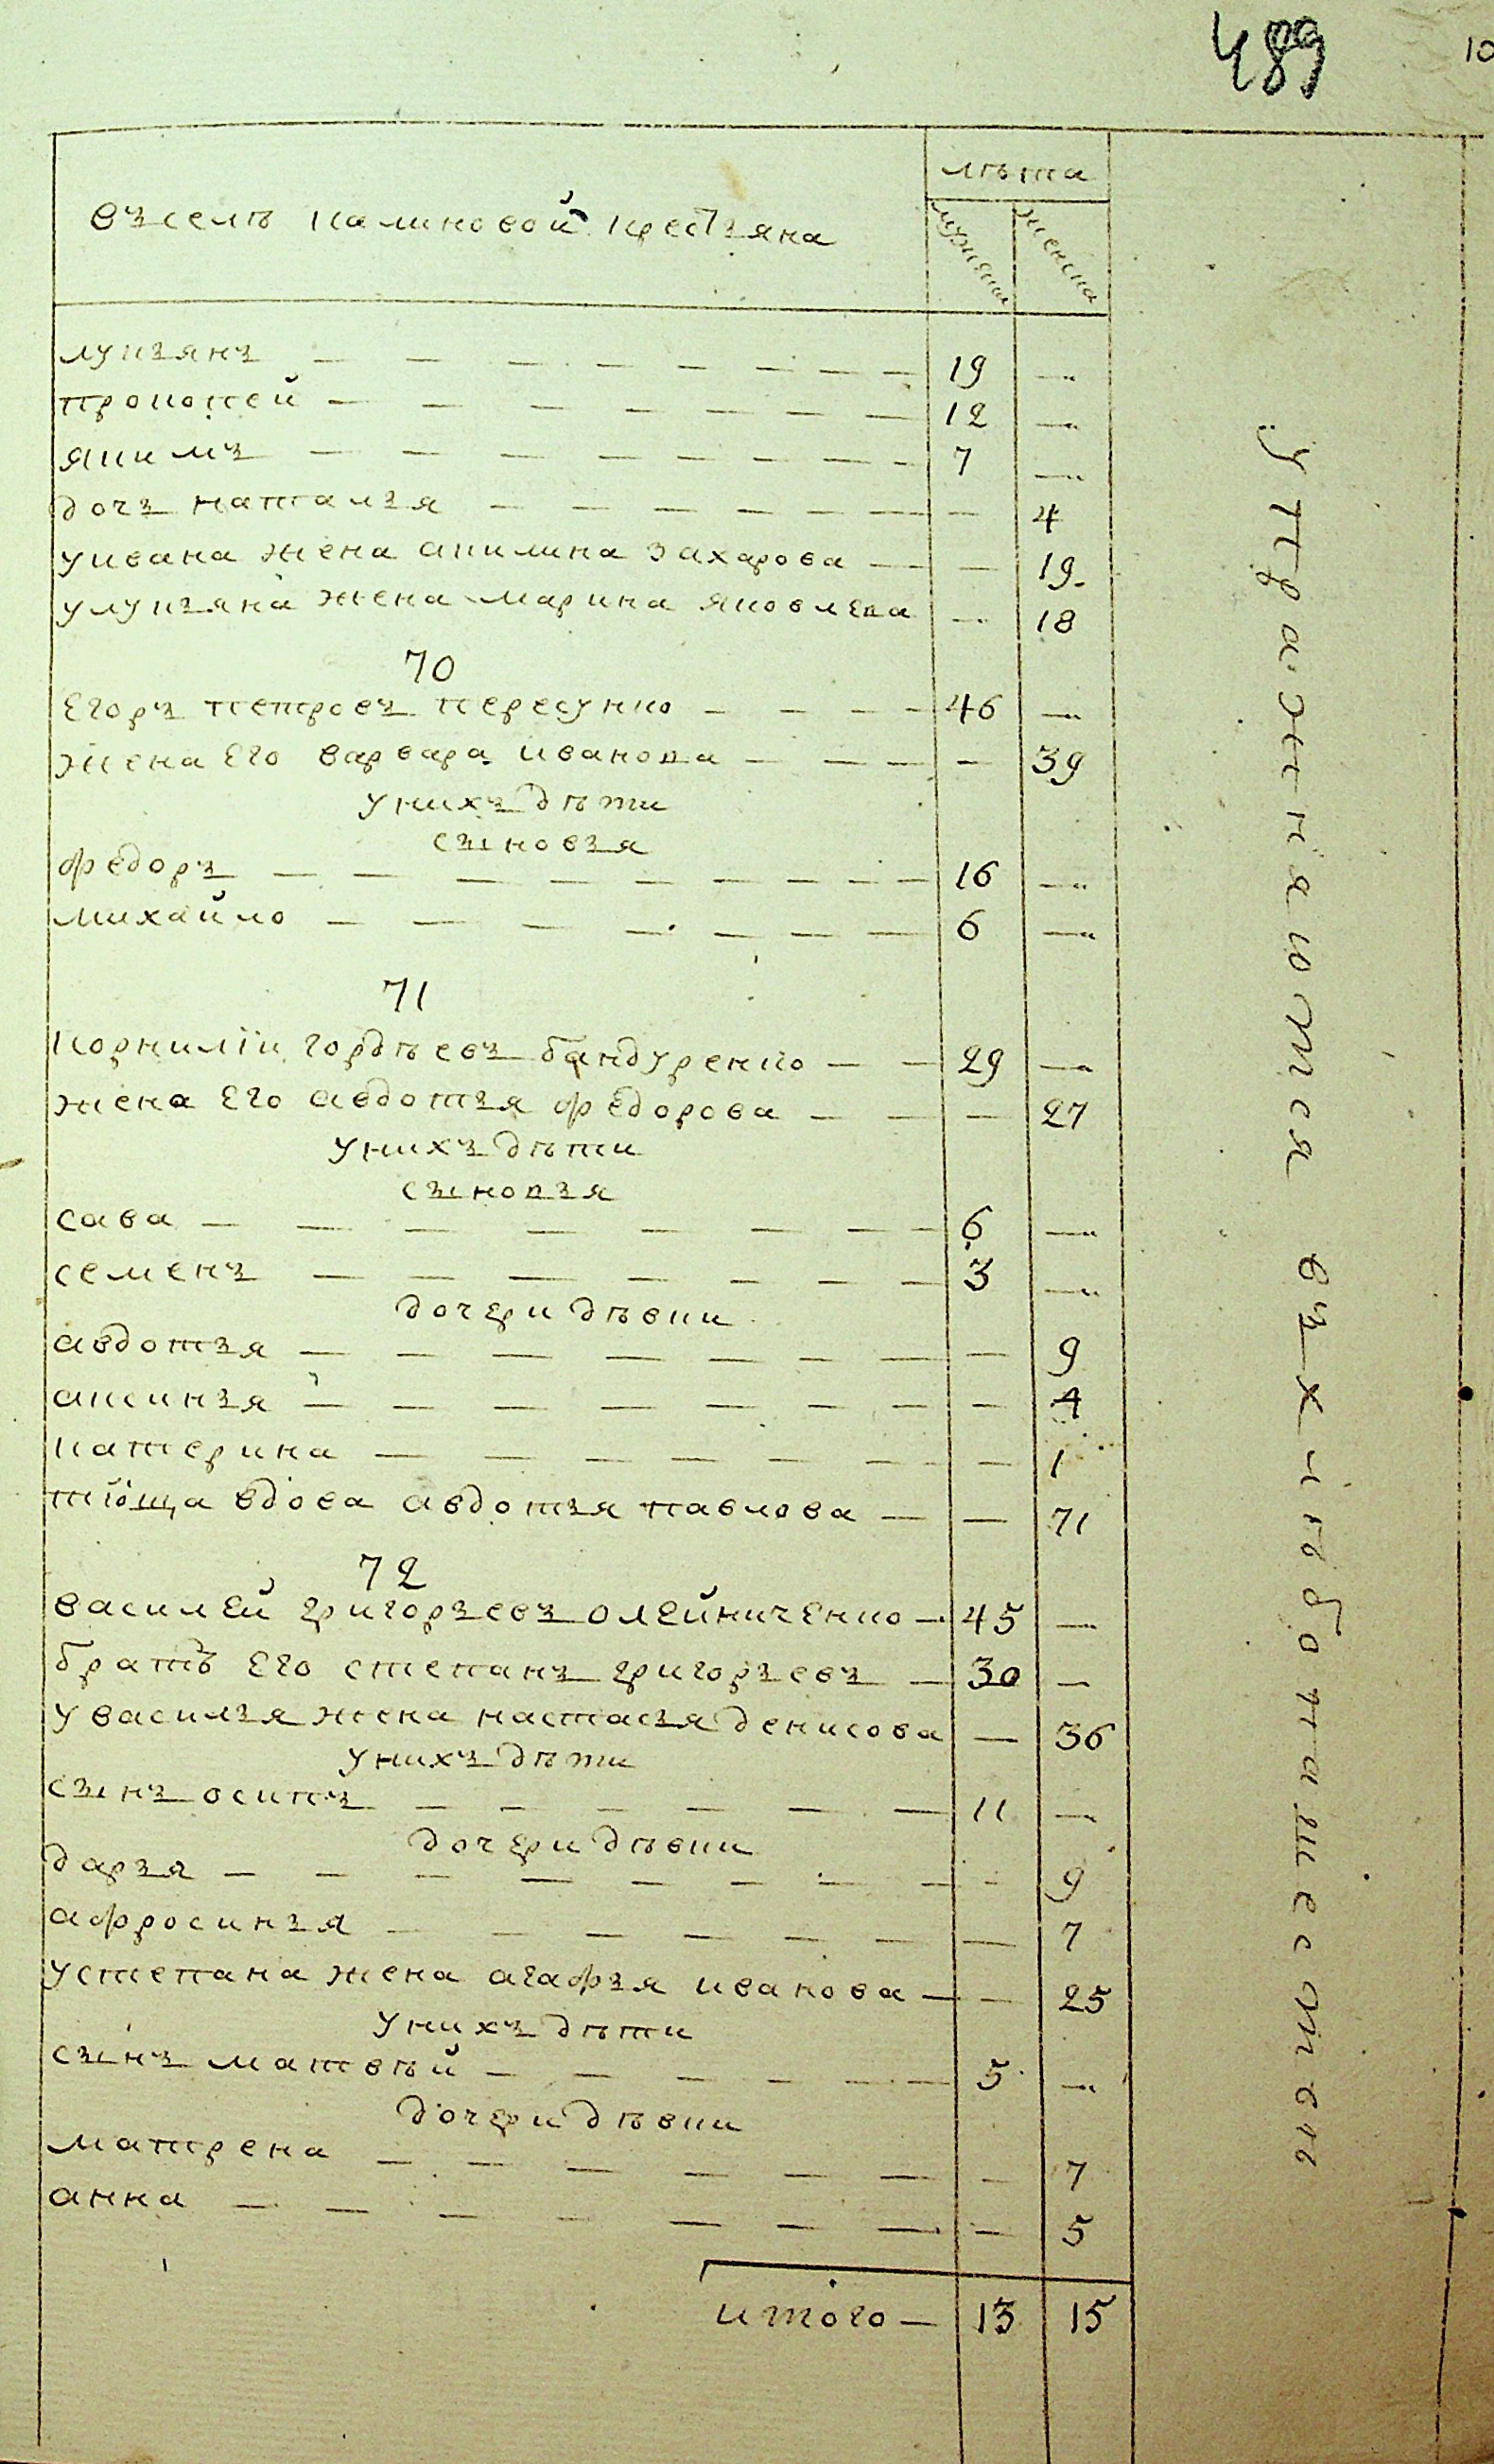 489
10
лѣта
въселѣ калиновой крестьяна
мужеска
женска
лукъянъ — 19 —
прокофей — 12 —
якимъ — 7 —
дочъ наталъя — — 4
уивана жена акилина захарова — — 19
улукъяна жена марина яковлева — — 18
70
Егоръ петровъ пересунко — 46 —
жена Его варвара иванова — — 39
унихъ дѣти
сыновъя
федоръ — 16 —
михайло — 6 —
71
корнилїи гордѣевъ бандуренко — 29 —
жена Его авдотъя федорова — — 27
унихъ дѣти
сыновъя
сава — 6 —
семенъ — 3 —
дочери дѣвки
авдотъя — — 9
аксинъя — — 4
катерина — — 1
тїоща вдова авдотъя павлова — — 71
72
василей григоръевъ олейниченко — 45 —
братъ Его степанъ григоръевъ — 30 —
увасилъя жена настасъя денисова — 36
унихъ дѣти
сынъ осипъ — 11 —
дочери дѣвки
даръя — — 9
афросинъя — — 7
устепана жена агафъя иванова — — 25
унихъ дѣти
сынъ матвѣй — 5 —
дочери дѣвки
матрена — — 7
анна — — 5
итого — 13 15
упражняютса въ хлѣбопашествѣ